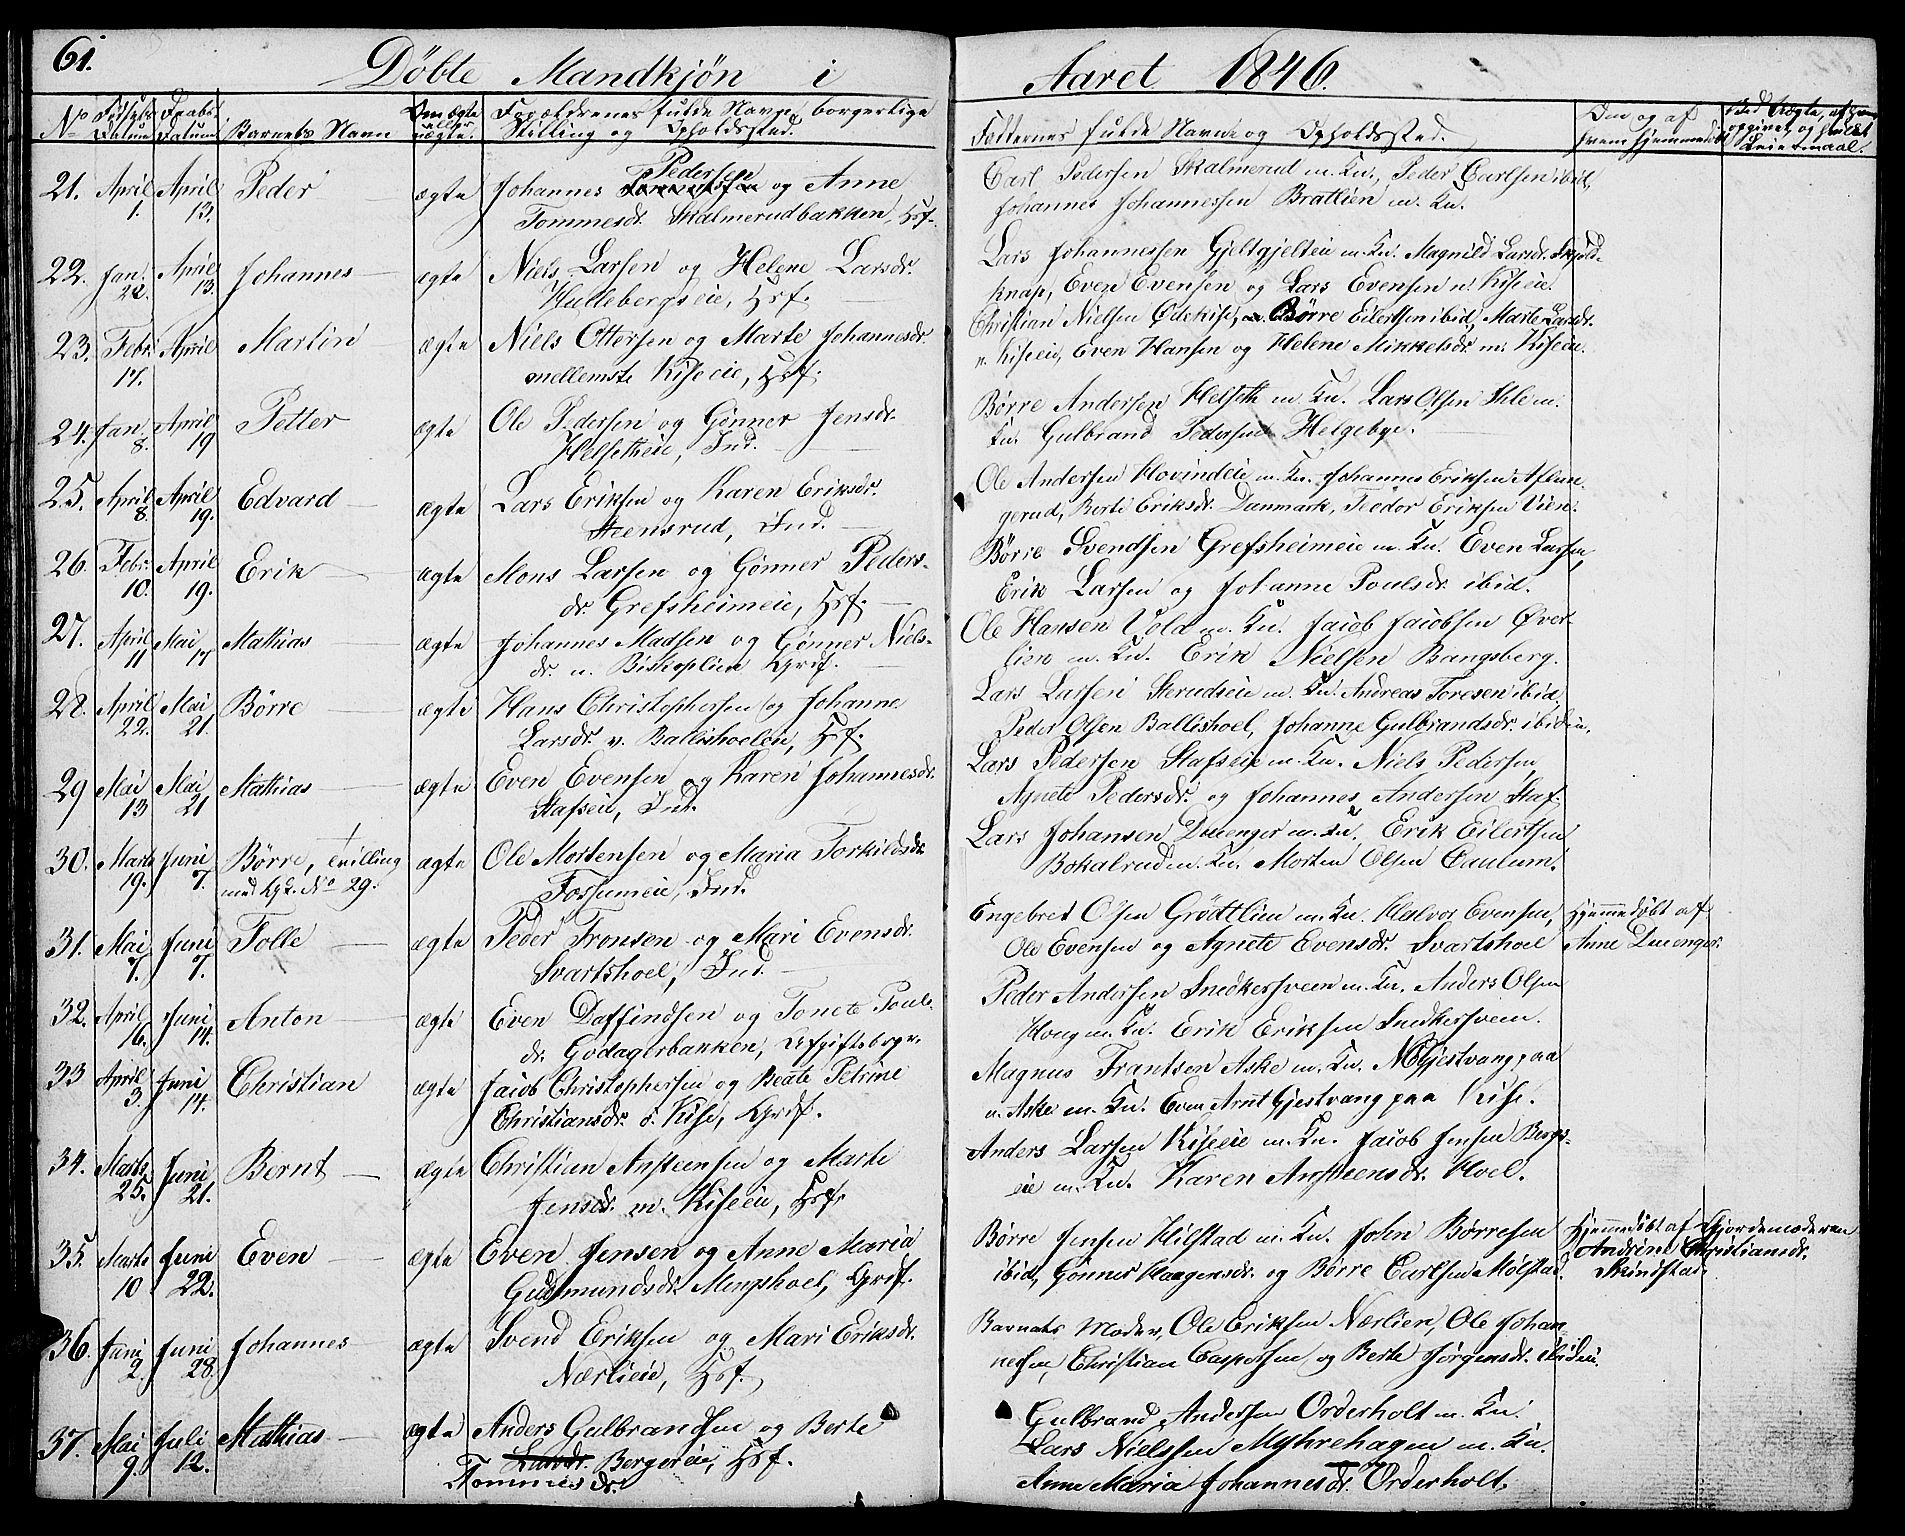 61.
Döbte Mandkjön i Aaret 1846.
No Födsels Datum Daabs Datum Barnets Navn Om ægte eller uægte. Forældrenes fulde Navne, borgerlige Stilling og Opholdssted. Faddernes fulde Navne og Opholdssted. Om og af hvem hjemmedöbt
21. April 1. April 13. Peder ægte Johannes Pedersen og Anne
Tommesdr. Skalmerudbakken, Hsf.
Carl Pedersen Skalmerud m. Kn., Peder Carlsen ibid,
Johannes Johannessen Bratlien m. Kn.
22. Jan. 22. April 13. Johannes ægte Niels Larsen og Helene Larsdr.
Hullebergseie, Hsf.
Lars Johannessen Gjeltgjelteie m. Kn. Magnild Larsdr. Skjold-
knap, Even Evensen og Lars Evensen n. Kiseie.
23. Febr. 17. April Martin ægte Niels Ottersen og Marte Johannesdr.
mellemste Kiseeie, Hsf.
Christian Nielsen Ødekise, Börre Eilertsen ibid, Marte Larsdr.
n. Kiseeie, Even Hansen og Helene Mikkelsdr. m. Kiseeie.
24. Jan. 8. April 19 Petter ægte Ole Pedersen og Gönner Jensdr.
Helsetheie, Ind.
Börre Andersen Helseth m. Kn. Lars Olsen Ihle m.
Kn. Gulbrand Pedersen Helgebye.
25. April 8. April 19. Edvard ægte Lars Eriksen og Karen Eriksdr.
Steensrud, Ind.
Ole Andersen Hovindeie m. Kn. Johannes Eriksen Aslun-
gerud, Berte Eriksdr. Danmark, Teodor Eriksen Vien.
26. Febr. 10. April 19. Erik ægte Mons Larsen og Gönner Peders-
dr. Grefsheimeie, Hsf.
Börre Svendsen Grefsheimeie m. Kn. Even Larsen,
Erik Larsen og Johanne Poulsdr. ibid.
27. April 11 Mai 17 Mathias ægte Johannes Madsen og Gönner Niels-
dr. n. Biskoplien Grdf.
Ole Hansen Vold m. Kn. Jacob Jacobsen Øver-
lien m. Kn. Erik Nielsen Bangsberg.
28. April 22. Mai 21. Börre ægte Hans Christophersen og Johanne
Larsdr. v. Ballishoeleie, Hsf.
Lars Larsen Sterudseie m. Kn. Andreas Toresen ibid,
Peder Olsen Ballishoel, Johanne Gulbrandsdr. ibideie.
29 Mai 13 Mai 21 Mathias ægte Even Evensen og Karen Johannesdr.
Stafseie, Ind.
Lars Pedersen Stafseie m. Kn. Niels Pedersen,
Agnete Pedersdr. og Johannes Andersen Staf.
30. Marts 19. Juni 7. Börre, tvilling ægte Ole Mortensen og Maria Torkildsdr.
med Kjk. No 29. Fossumeie, Ind.
Lars Johansen Duenger m. Kn. Erik Eilertsen
Bokalrud m. Kn. Morten Olsen Caulum.
31. Mai 7. Juni 7. Tolle ægte Peder Tronsen og Mari Evensdr.
Svartshoel, Ind.
Engebret Olsen Grödtlien m. Kn. Halvor Evensen, Hjemmedöbt af
Ole Evensen og Agnete Evensdr. Svartshoel Anne Duenger.
32. April 16. Juni 14. Anton ægte Even Daffindsen og Tonete Pouls-
dr. Godagerbakken, Afgiftsbrgr.
Peder Andersen Snedkersveen m. Kn. Anders Olsen
Houg m. Kn. Erik Eriksen Snedkersveen.
33 April 3. Juni 14. Christian ægte Jacob Christophersen og Beate Petrine
Christiansdr. ö. Kise, Grdf.
Magnus Frantsen Aske m. Kn. N. Gjestvang paa
n. Aske m. Kn. Even Arnt Gjestvang paa Kise.
34. Marts 25. Juni 21. Bernt ægte Christian Ansteensen og Marte
Jensdr. m. Kiseeie, Hsf.
Anders Larsen Kiseeie m. Kn. Jacob Jensen Bergs-
eie m. Kn. Karen Ansteensdr. Hoel.
35. Marts 10 Juni 22. Even ægte Even Jensen og Anne Maria
Gudmundsdr. Mengshoel, Grdf.
Börre Jensen Hilstad m. Kn. John Börresen Hjemmedöbt af Gjordemoderen
ibid, Gönner Haagensdr. og Börre Carlsen Molstad. Andrine Christiansdr.
Skindstad.
36. Juni 2. Juni 28. Johannes ægte Svend Eriksen og Mari Eriksdr.
Nærlieie, Hsf.
Barnets Moder, Ole Eriksen Nærlien, Ole Johan
nesen, Christian Caspersen og Berte Jörgensdr. ibideie.
37. Mai 9. Juli 12. Mathias ægte Anders Gulbrandsen og Berte
Larsdr. Bergereie, Hsf.
Tommesdr.
Gulbrand Andersen Orderholt m. Kn.
Lars Nielssen Myhrehagen m. Kn.
Anne Maria Johannesdr. Orderholt.